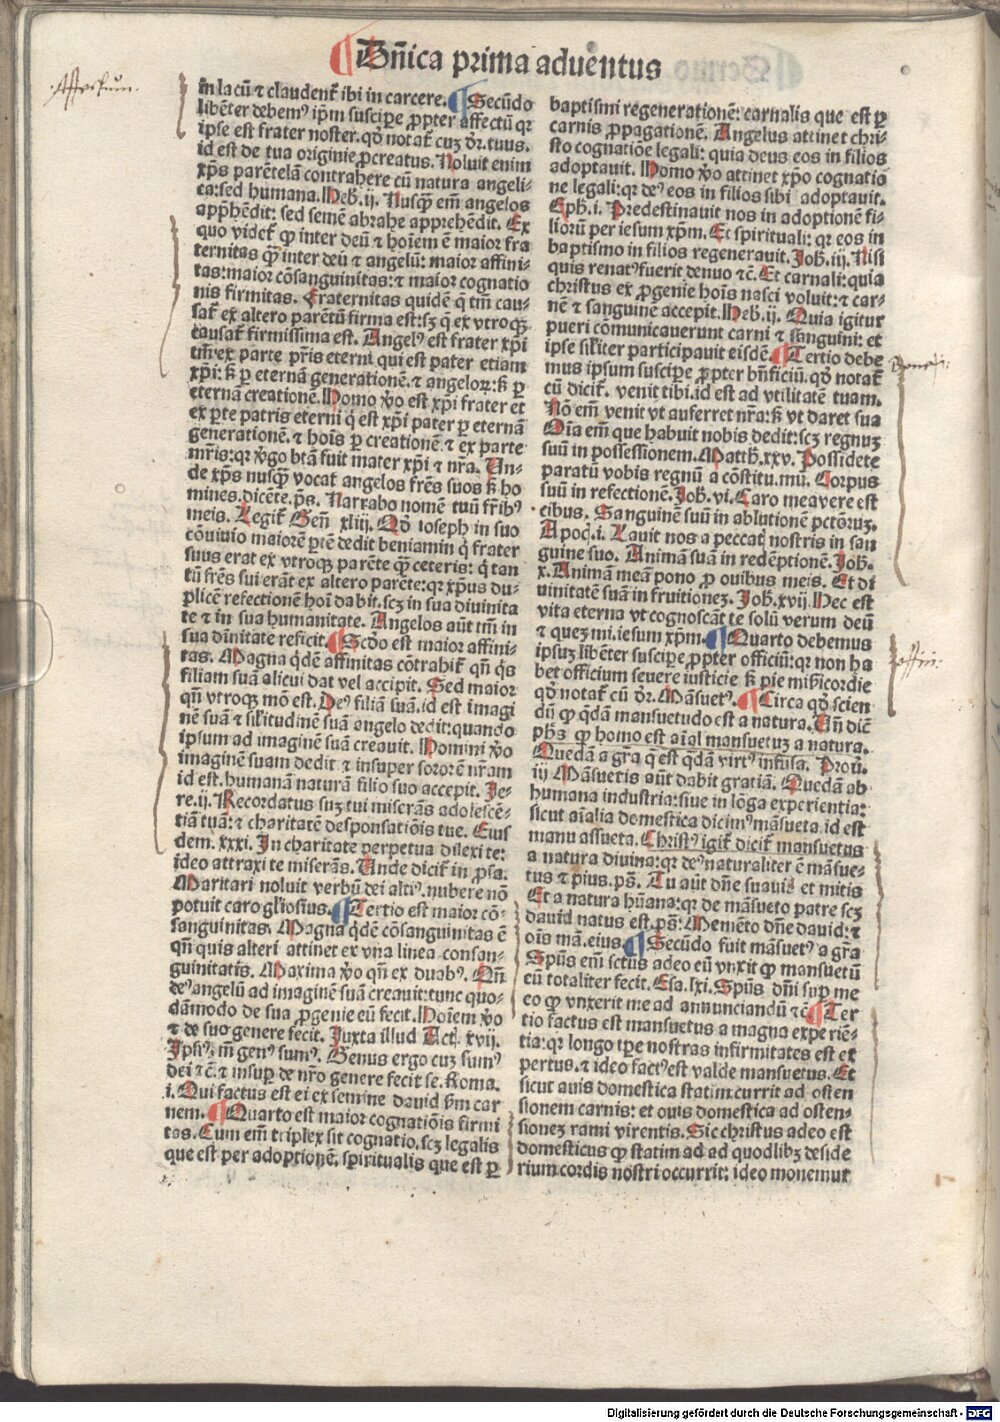 ¶ Dñica prima aduentus
Affectum.
in lacũ ⁊ claudent᷑ ibi in carcere. ¶ Secũdo
libẽter debemꝰ ip̃m suscipe ꝓpter affectũ qꝛ
ipse est frater noster. qđ notat᷑ cuꝫ dr̃. tuus.
id est de tua origine ꝓcreatus. Noluit enim
xp̃s parẽtelã contrahere cũ natura angeli-
ca: sed humana. Heb̃. ij. Nusq̃ em̃ angelos
app̃hẽdit: sed semẽ abrahe apprehẽdit. Ex
quo videt᷑ ꝙ inter deũ ⁊ hoĩem ẽ maior fra
ternitas q̃ inter deũ ⁊ angelũ: maior affini-
tas: maior cõsanguinitas: ⁊ maior cognatio
nis firmitas. Fraternitas quidẽ q̃ tm̃ cau-
sat᷑ ex altero parẽtũ firma est: sꝫ q̃ ex vtroqꝫ
causat᷑ firmissima est. Angelꝰ est frater xp̃i
tm̃ ex parte pr̃is eterni qui est pater etiam
xp̃i: ß ꝑ eternã generationẽ. ⁊ angeloꝝ: ß ꝑ
eternã creationẽ. Homo v̊o est xp̃i frater et
ex ꝑte patris eterni q̇ est xp̃i pater ꝑ eternã
generationẽ. ⁊ hoĩs ꝑ creationẽ ⁊ ex parte
mr̃is: qꝛ v̊go btã fuit mater xp̃i ⁊ nr̃a. Un-
de xp̃s nusq̃ vocat angelos fr̃es suos ß ho
mines. dicẽte. p̃s. Narrabo nomẽ tuũ fr̃ibꝰ
meis. Legit᷑ Geñ xliij. Qđ Ioseph in suo
cõuiuio maiorẽ ꝑtẽ dedit beniamin q̇ frater
suus erat ex vtroqꝫ parẽte q̃ ceteris: q̇ tan
tũ fr̃es sui erãt ex altero parẽte: qꝛ xp̃us du-
plicẽ refectionẽ hoĩ dabit. scꝫ in sua diuinita
te ⁊ in sua humanitate. Angelos aũt tm̃ in
sua diuinitate reficit. ¶ Scđo est maior affini-
tas. Magna q̇dẽ affinitas cõtrahit᷑ qñ q̇s
filiam suã alicui dat vel accipit. Sed maior
qñ vtroqꝫ mõ est. Deꝰ filiã suã. id est imagi
nẽ suã ⁊ sil̃itudinẽ suã angelo dedit: quando
ipsum ad imaginẽ suã creauit. Homini v̊o
imaginẽ suam dedit ⁊ insuper sororẽ nr̃am
id est. humanã naturã filio suo accepit. Je-
re. ij. Recordatus suꝫ tui miserãs adolescẽ-
tiã tuã: ⁊ charitatẽ desponsatiõis tue. Eius
dem. xxxi. In charitate perpetua dilexi te:
ideo attraxi te miserãs. Unde dicit᷑ in ꝓsa.
Maritari noluit verbũ dei altiꝰ. nubere nõ
potuit caro gl̃iosius. ¶ Tertio est maior cõ-
sanguinitas. Magna q̇dẽ cõsanguinitas ẽ
qñ quis alteri attinet ex vna linea consan-
guinitatis. Maxima v̊o qñ ex duabꝰ. Qñ
deꝰ angelũ ad imaginẽ suã creauit: tunc quo-
dãmodo de sua ꝓgenie eũ fecit. Hoĩem v̊o
⁊ de suo genere fecit. Juxta illud Act̃. xvij.
Ipsiꝰ m̃ genꝰ sumꝰ. Genus ergo cuꝫ sumꝰ
dei ⁊c̃. ⁊ insuꝑ de nr̃o genere fecit se. Roma.
i. Qui factus est ei ex semine dauid ẜm car
nem. ¶ Quarto est maior cognatiõis firmi
tas. Cum em̃ triplex sit cognatio. scꝫ legalis
que est per adoptionẽ. spiritualis que est ꝑ
baptismi regenerationẽ: carnalis que est ꝑ
carnis ꝓpagationẽ. Angelus attinet chri-
sto cognatiõe legali: quia deus eos in filios
adoptauit. Homo v̊o attinet xp̃o cognatiõ
ne legali: qꝛ deꝰ eos in filios sibi adoptauit.
Eph̃. i. Predestinauit nos in adoptionẽ fi-
lioꝝ per iesum xp̃m. Et spirituali: qꝛ eos in
baptismo in filios regenerauit. Joh̃. iij. Nisi
quis renatꝰ fuerit denuo ⁊c̃. Et carnali: quia
christus ex ꝓgenie hoĩs nasci voluit: ⁊ car-
nẽ ⁊ sanguinẽ accepit. Heb̃. ij. Quia igitur
pueri cõmunicauerunt carni ⁊ sanguini: et
ipse sil̃iter participauit eisdẽ. ¶ Tertio debe
mus ipsum suscipe ꝓpter bñficiũ. qđ notat᷑
cũ dicit᷑. venit tibi. id est ad vtilitatẽ tuam.
Nõ em̃ venit vt auferret nr̃a: ß vt daret sua
Oĩa em̃ que habuit nobis dedit: scꝫ regnuꝫ
suũ in possessionem. Matth̃. xxv. Possidete
paratũ vobis regnũ a cõstitu. mũ. Corpus
suũ in refectionẽ. Joh̃. vi. Caro mea vere est
cibus. Sanguinẽ suũ in ablutionẽ pctõꝝ.
Apoc̃. i. Lauit nos a peccat̃ nostris in san
guine suo. Animã suã in redẽptionẽ. Joh̃.
x. Animã meã pono ꝓ ouibus meis. Et di
uinitatẽ suã in fruitioneꝫ. Joh̃. xvij. Hec est
vita eterna vt cognoscãt te solũ verum deũ
⁊ queꝫ mi. iesum xp̃m. ¶ Quarto debemus
ipsuꝫ libẽter suscipe ꝓpter officiũ: qꝛ non ha
bet officium seuere iusticie ß pie mis̃icordie
qđ notat᷑ cũ dr̃. Mãsuetꝰ. ¶ Circa qđ scien
dũ ꝙ q̃dã mansuetudo est a natura. Uñ dic̃
ph̃s ꝙ homo est aĩal mansuetuꝫ a natura.
Quedã a gr̃a q̃ est q̃dã virtꝰ infusa. Prou̇.
iij Mãsuetis aũt dabit gratiã. Quedã ab
humana industria: siue in lõga experientia:
sicut aĩalia domestica dicimꝰ mãsueta. id est
manu assueta. Christꝰ igit᷑ dicit᷑ mansuetus
a natura diuina: qꝛ deꝰ naturaliter ẽ mãsue-
tus ⁊ pius. p̃s. Tu aũt dñe suauis et mitis
Et a natura hũana: qꝛ de mãsueto patre scꝫ
dauid natus est. p̃s: Memẽto dñe dauid: ⁊
oĩs mã. eius. ¶ Secũdo fuit mãsuetꝰ a gr̃a
Spũs em̃ sctũs adeo eũ vnxit ꝙ mansuetũ
eũ totaliter fecit. Esa. lxi. Spũs dñi suꝑ me
eo ꝙ vnxerit me ad annunciandũ ⁊c̃. ¶ Ter
tio factus est mansuetus a magna experiẽ-
tia: qꝛ longo tꝑe nostras infirmitates est ex
pertus. ⁊ ideo factꝰ est valde mansuetus. Et
sicut auis domestica statim currit ad osten
sionem carnis: et ouis domestica ad osten-
sioneꝫ rami virentis. Sic christus adeo est
domesticus ꝙ statim ad ad quodlibꝫ deside
rium cordis nostri occurrit: ideo monemur
Digitalisierung gefördert durch die Deutsche Forschungsgemeinschaft - DFG